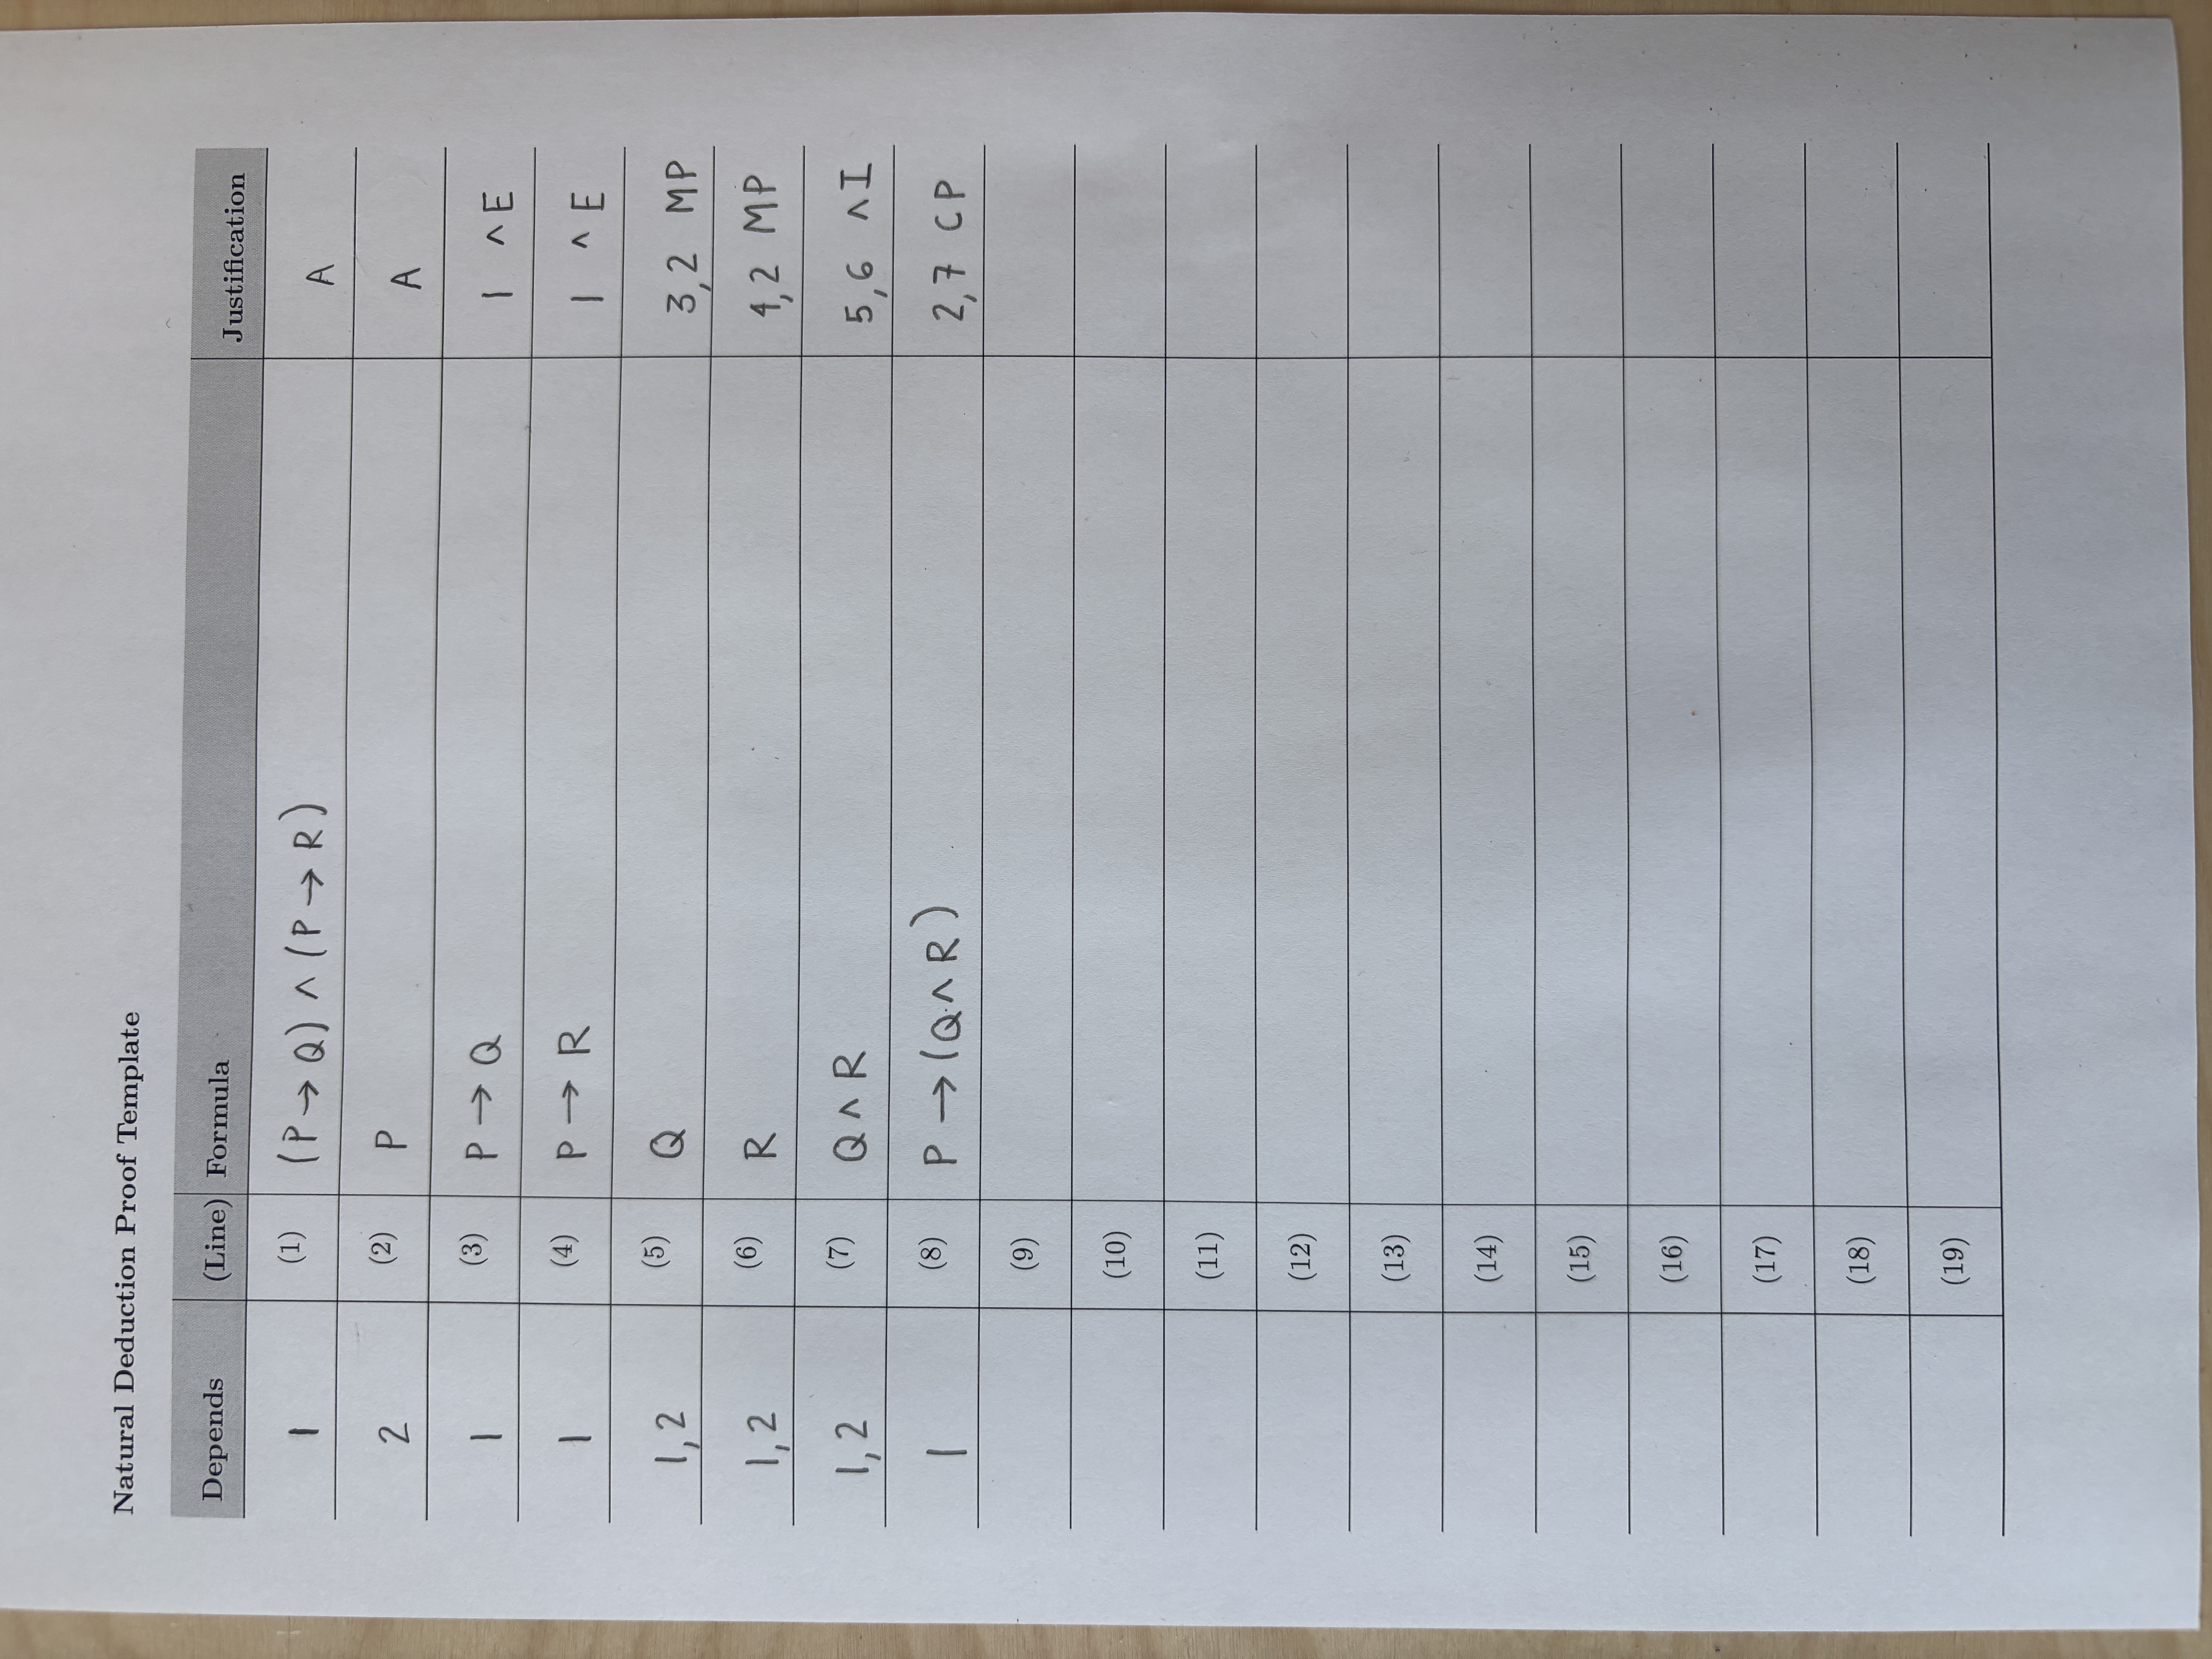 Natural Deduction Proof Template
Depends (Line) Formula Justification
1 (1) (P → Q) ∧ (P → R) A
2 (2) P A
1 (3) P → Q 1 ∧E
1 (4) P → R 1 ∧E
1,2 (5) Q 3,2 MP
1,2 (6) R 4,2 MP
1,2 (7) Q ∧ R 5,6 ∧I
1 (8) P → (Q ∧ R) 2,7 CP
(9)
(10)
(11)
(12)
(13)
(14)
(15)
(16)
(17)
(18)
(19)